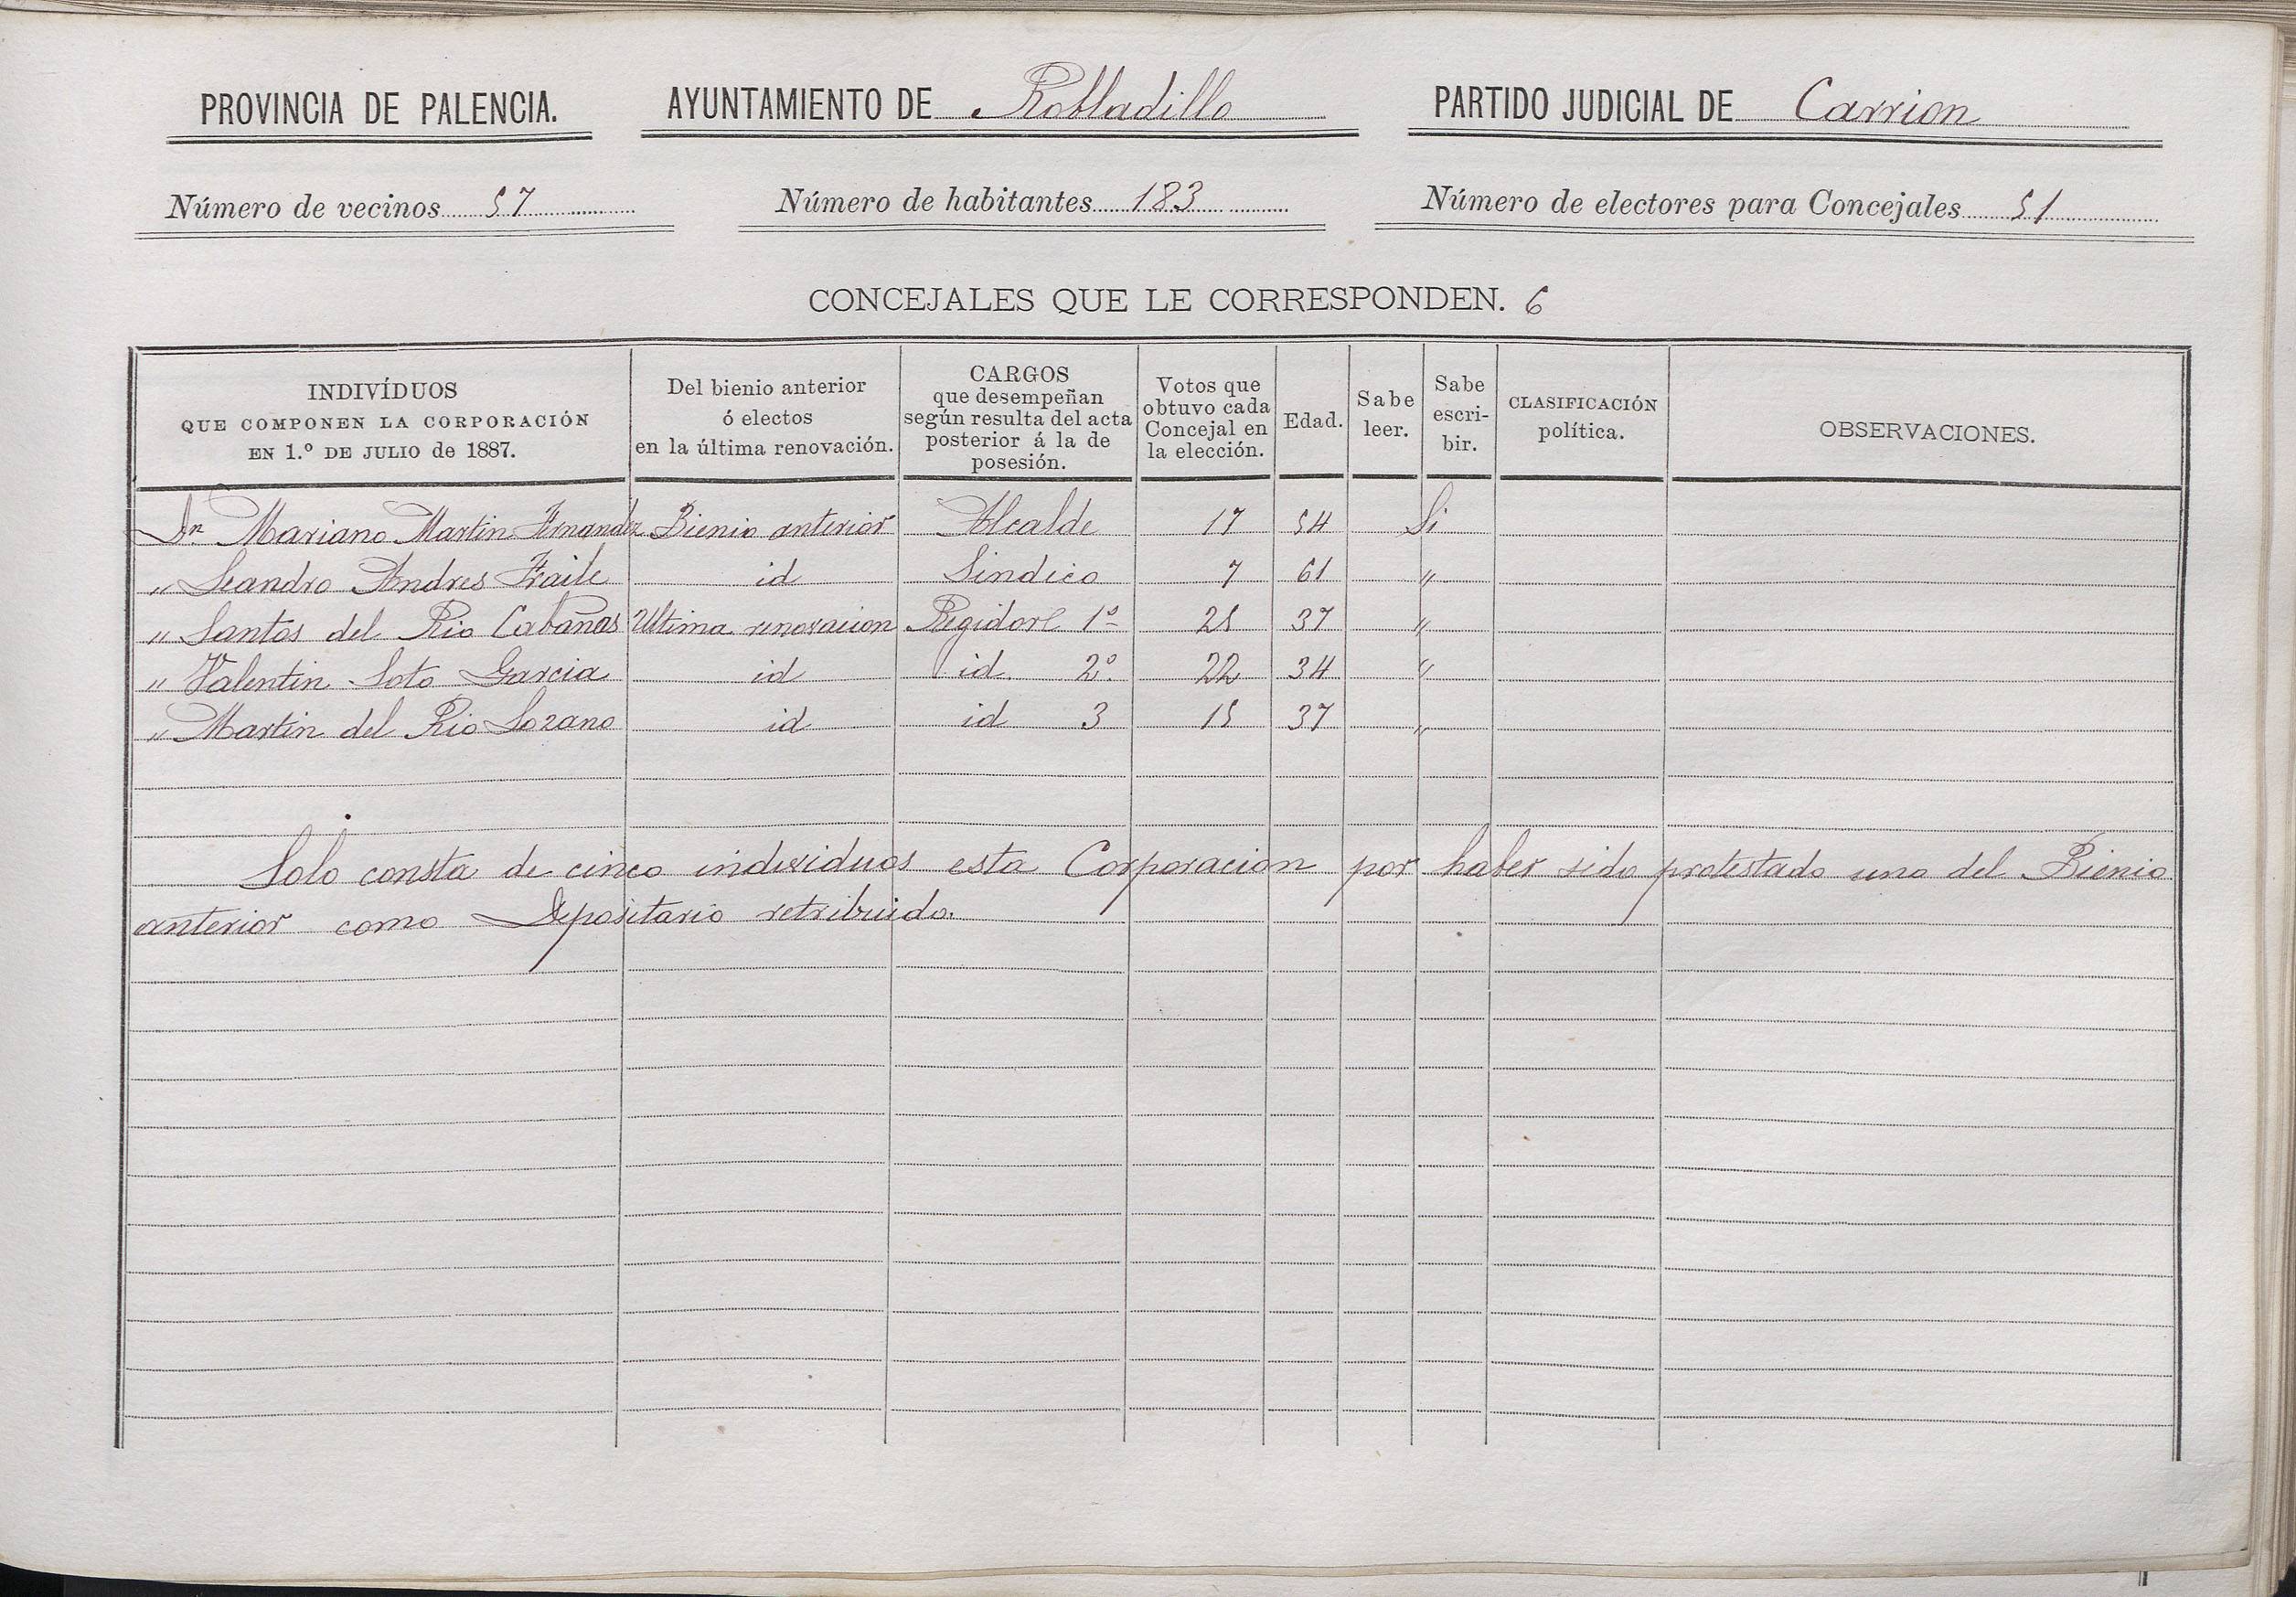 PROVINCIA DE PALENCIA. AYUNTAMIENTO DE Robladillo PARTIDO JUDICIAL DE Carrion
Número de vecinos 57 Número de habitantes 183 Número de electores para Concejales 51
CONCEJALES QUE LE CORRESPONDEN. 6
INDIVÍDUOS
QUE COMPONEN LA CORPORACIÓN
EN 1.º DE JULIO de 1887.
Del bienio anterior
ó electos
en la última renovación.
CARGOS
que desempeñan
según resulta del acta
posterior á la de
posesión.
Votos que
obtuvo cada
Concejal en
la elección.
Edad.
Sabe
leer.
Sabe
escri-
bir.
CLASIFICACIÓN
política.
OBSERVACIONES.
Dn Mariano Martin Fernandez Bienio anterior Alcalde 17 54 Si
" Leandro Andres Fraile id Sindico 7 61 "
" Santos del Rio Cabañas Ultima renovacion Regidor 1º 25 37 "
" Valentin Soto Garcia id id 2º 22 34 "
" Martin del Rio Lozano id id 3 15 37 "
Solo consta de cinco individuos esta Corporacion por haber sido protestado uno del Bienio
anterior como Depositario retribuido.